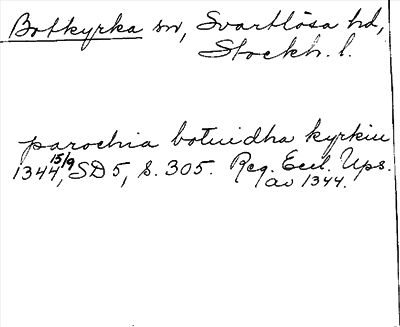 Botkyrka sn, Svartlösa hd,
Stockh. l.
parochia botuidha kyrkiu
1344 15/9, SD 5, s. 305. Reg. Eccl. Ups.
av 1344.